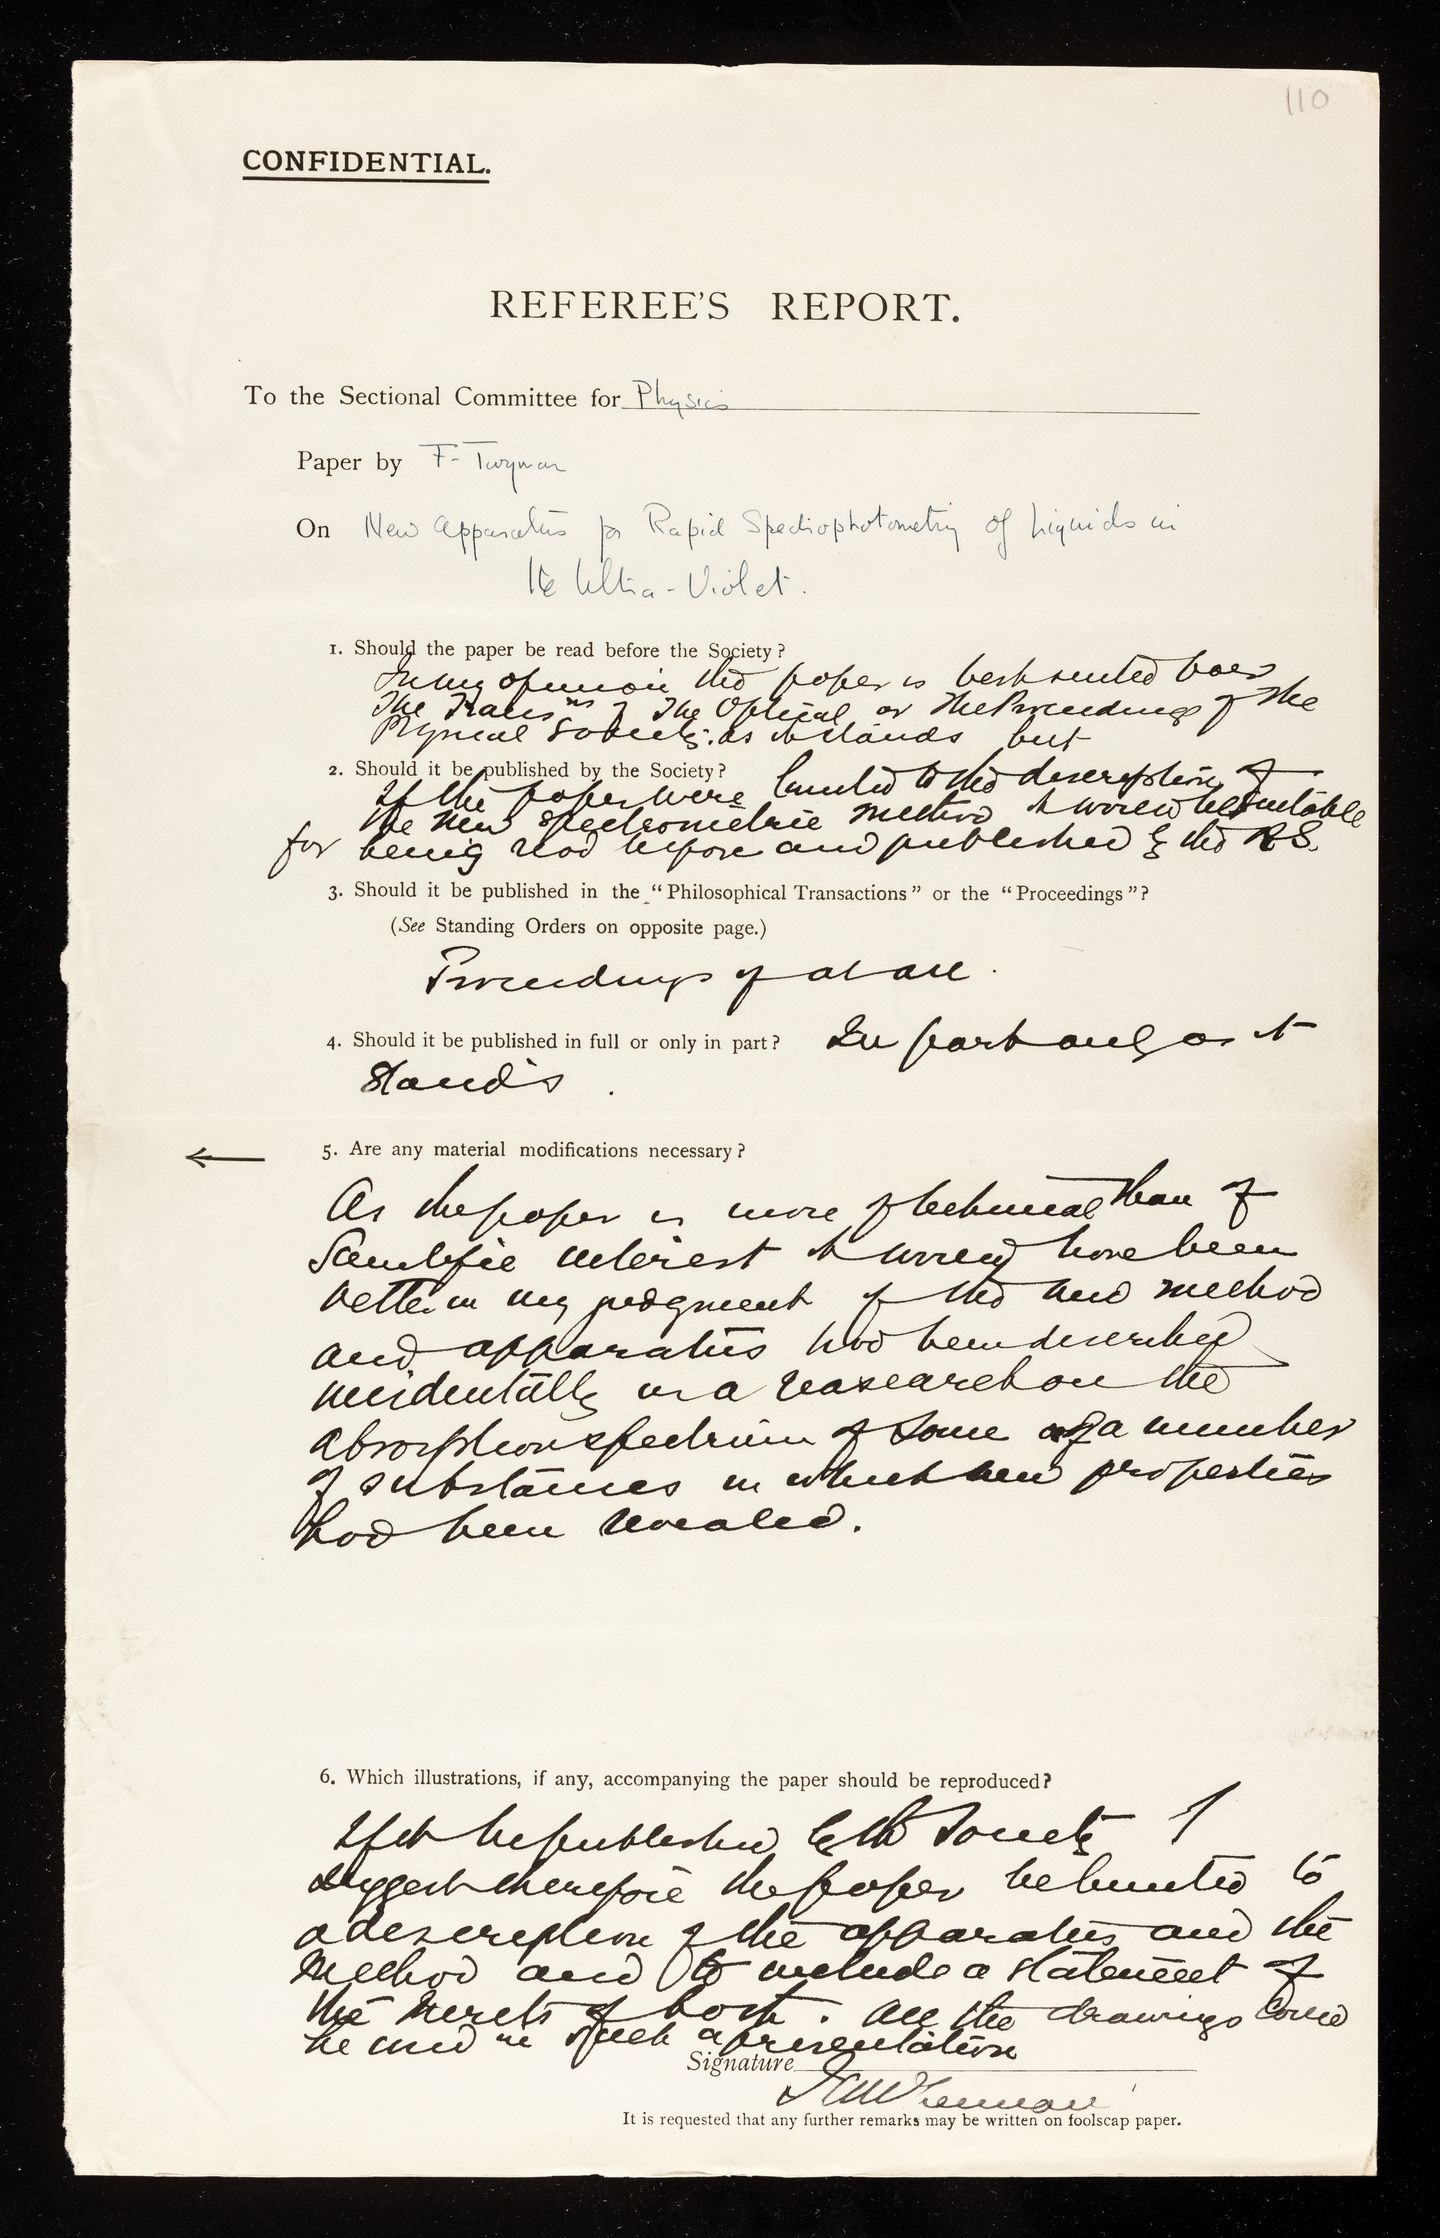 110
CONFIDENTIAL.
REFEREE'S REPORT.
To the Sectional Committee for Physics
Paper by F. Twyman
On New Apparatus for Rapid Spectrophotometry of Liquids in
the Ultra-Violet.
1. Should the paper be read before the Society?
In my opinion this paper is best suited
The Transns of The Optical or The Proceedings of the
Physical Society. as it stands but
2. Should it be published by the Society?
If the paper were limited to the description of
the new spectrometric method it would be suitable
for being read before and published by the R S.
3. Should it be published in the "Philosophical Transactions" or the "Proceedings"?
(See Standing Orders on opposite page.)
Proceedings if at all.
4. Should it be published in full or only in part? In part only as it
stands.
← 5. Are any material modifications necessary?
As the paper is more of technical than of
Scientific interest it would have been
better in my judgment if the new method
and apparatus had been described
incidentally in a research on the
absorption spectrum of some of a number
of substances in which new properties
had been revealed.
6. Which illustrations, if any, accompanying the paper should be reproduced?
If it be published by the Society I
suggest therefore the paper be limited to
a description of the apparatus and the
Method and to include a statement of
the merits of both. All the drawings could
be used in such a presentation
Signature J C McLennan
It is requested that any further remarks may be written on foolscap paper.